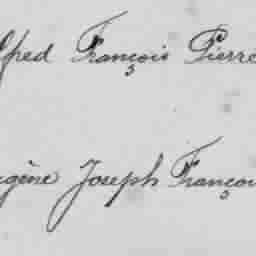 lfred François Pierre
ugène Joseph Françoi